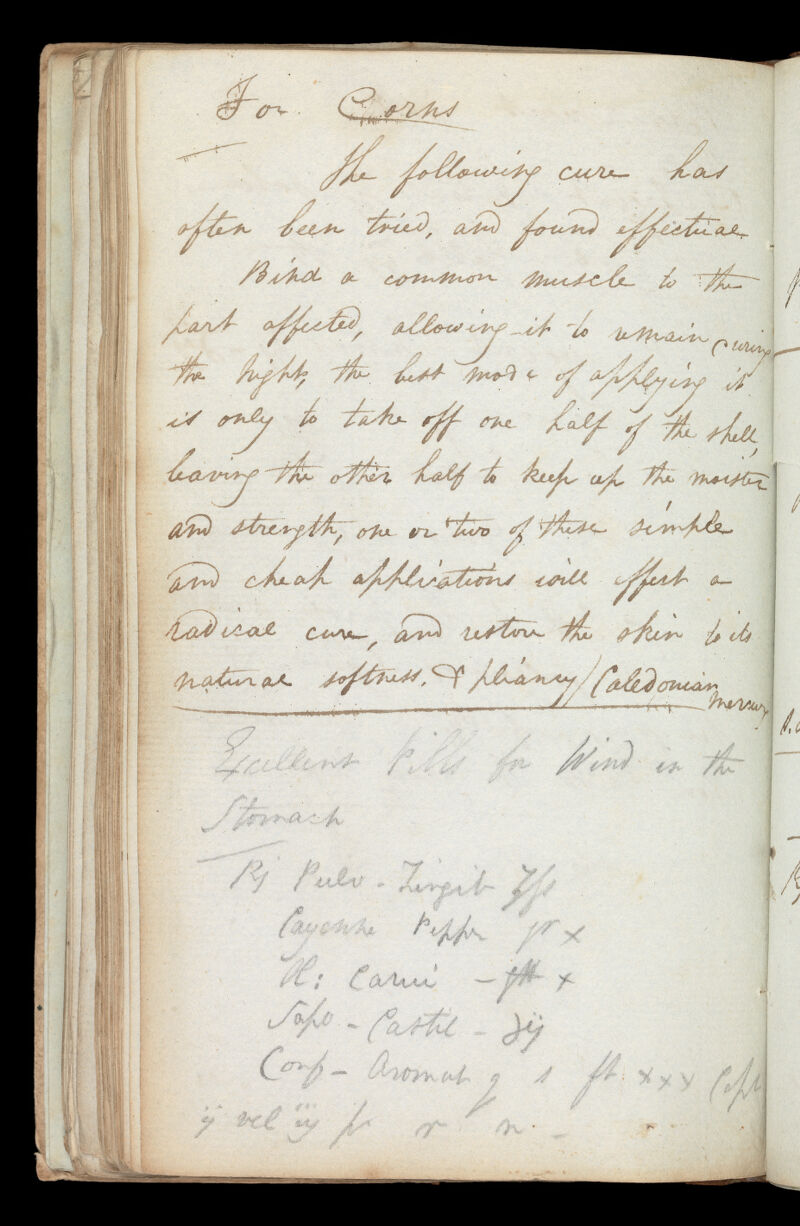 For Corns
The following cure has
often been tried, and found effectual
Bind a common muscle to the
part affected, allowing it to remain during
the night, the best mode of applying it
is only to take off one half of the shell,
leaving the other half to keep up the moister
and strength, one or two of these simple
and cheap applications will effect a
radical cure, and restore the skin to its
natural softness. & pliancy / Caledonian
Mercury
Excellent Pills for Wind in the
Stomach
Rj Pulv - Zingib ʒſs
Cayenne Pepper gr x
Ol: Carui - gtt x
Sapo - Castil - ℈ij
Conf - Aromat q s ft xxx
ij vel iij p r n. -